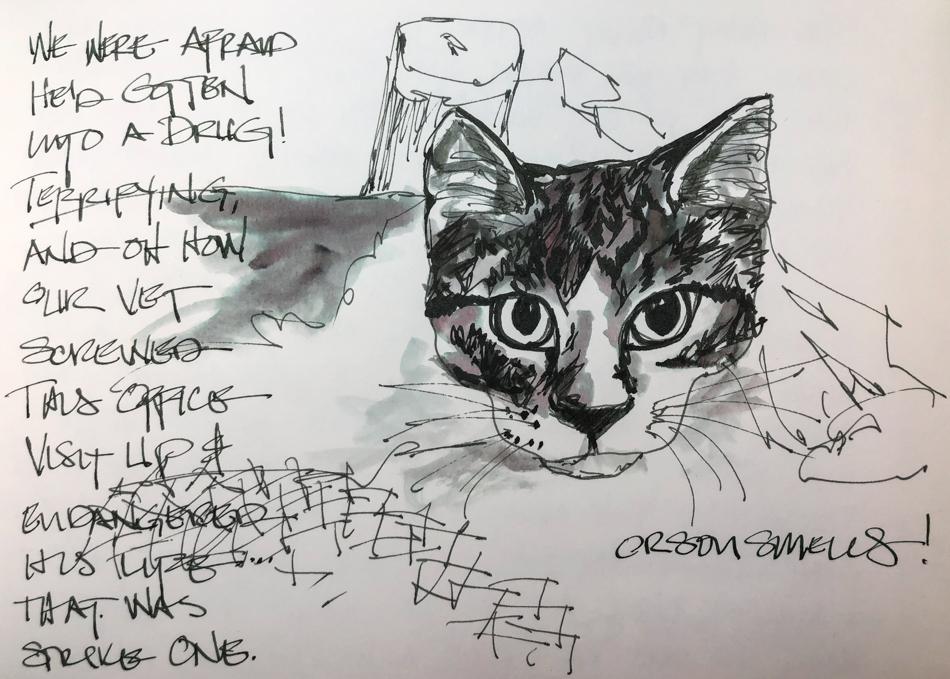 WE WERE AFRAID
HE'D GOTTEN
INTO A DRUG!
TERRIFYING,
AND OH HOW
OUR VET
SCREWED
THIS OFFICE
VISIT UP &
ENDANGERED
HIS LIFE....
THAT WAS
STRIKE ONE.
ORSON SMELLS!